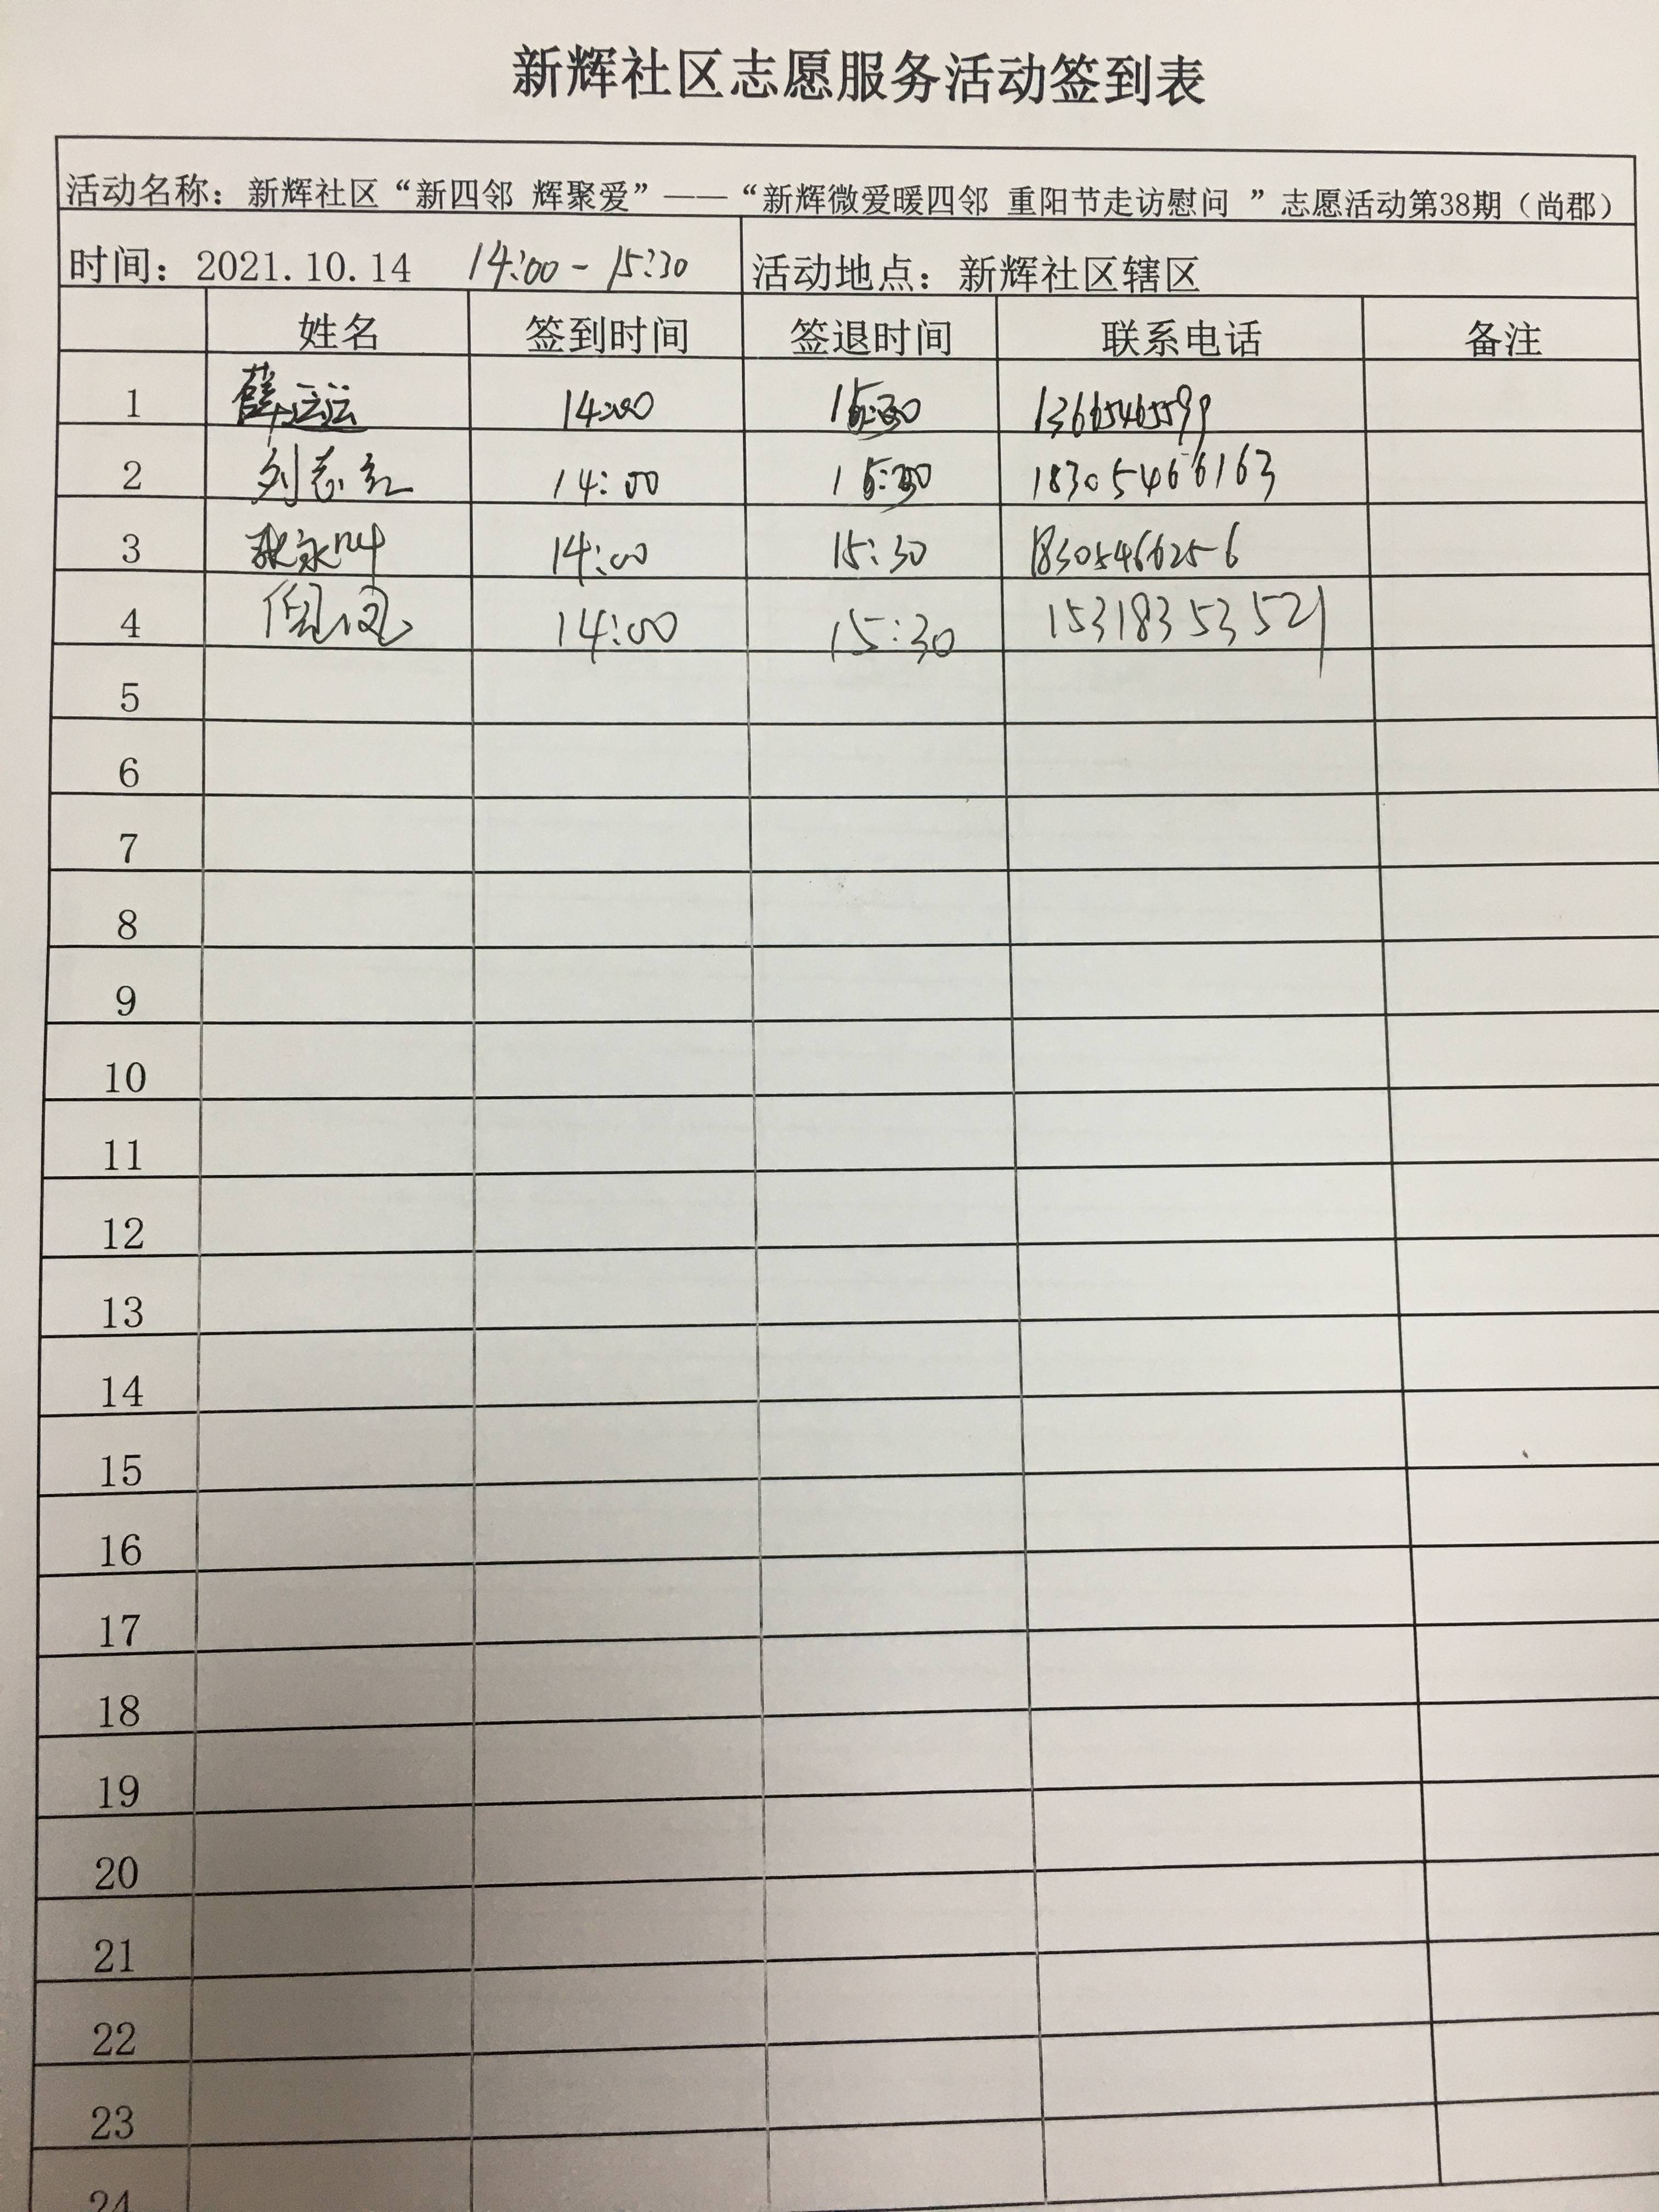 新辉社区志愿服务活动签到表
活动名称：新辉社区“新四邻 辉聚爱”——“新辉微爱暖四邻 重阳节走访慰问 ”志愿活动第38期（尚郡）
时间：2021.10.14 14:00-15:30 活动地点：新辉社区辖区
姓名 签到时间 签退时间 联系电话 备注
1 薛运运 14:00 15:30 13665465599
2 刘志红 14:00 15:30 18305466163
3 14:00 15:30 18305466256
4 倪凤 14:00 15:30 15318353521
5
6
7
8
9
10
11
12
13
14
15
16
17
18
19
20
21
22
23
24